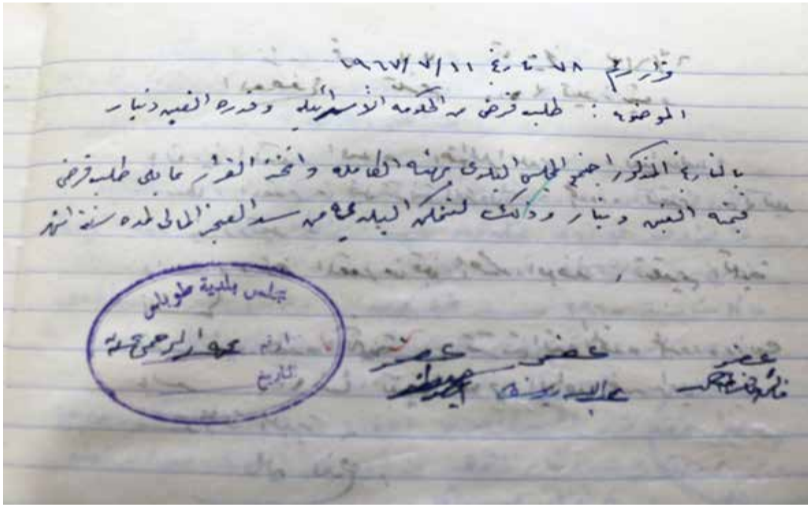 قرار رقم ٧٨ تاريخ ١٩٦٧/٧/١١
الموضوع : طلب قرض من الحكومة الاسرائيلية وقدره الفين دينار
بالتاريخ المذكور اجتمع المجلس البلدي بهيئته الكاملة واتخذ القرار ما يلي طلب قرض
قيمته الفين دينار وذلك لتتمكن البلدية من سد العجز المالي لمدة ستة اشهر
مجلس بلدية طوباس
عضو عضو عضو
التاريخ